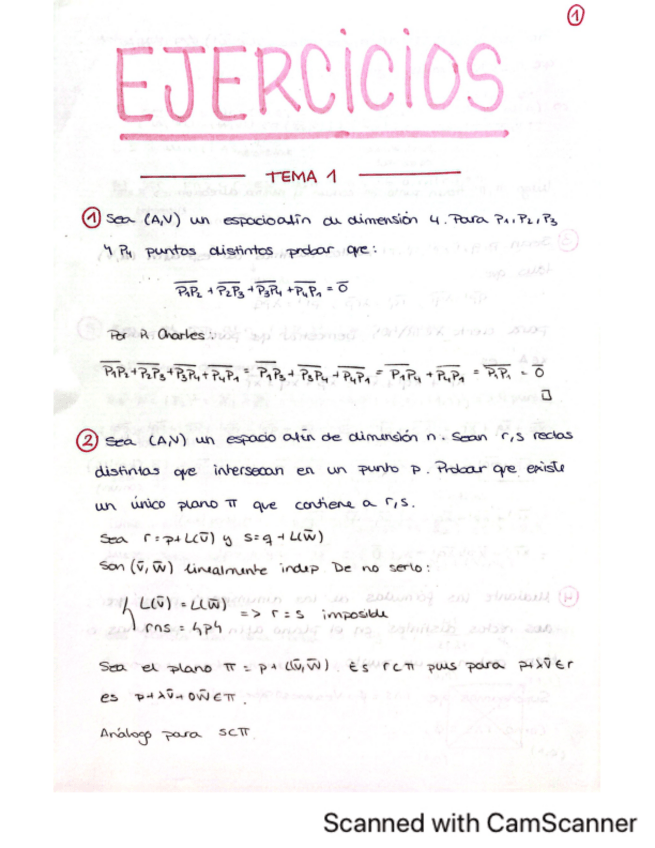 1
EJERCICIOS
TEMA 1
① Sea (A,V) un espacio afín de dimensión 4. Para P₁, P₂, P₃
y P₄ puntos distintos, probar que:
P̅₁P̅₂ + P̅₂P̅₃ + P̅₃P̅₄ + P̅₄P̅₁ = 0̅
Por R. Charles:
P̅₁P̅₂ + P̅₂P̅₃ + P̅₃P̅₄ + P̅₄P̅₁ = P̅₁P̅₃ + P̅₃P̅₄ + P̅₄P̅₁ = P̅₁P̅₄ + P̅₄P̅₁ = P̅₁P̅₁ = 0̅
□
② Sea (A,V) un espacio afín de dimensión n. Sean r,s rectas
distintas que intersecan en un punto p. Probar que existe
un único plano π que contiene a r,s.
Sea r = p + L(v̅) y s = q + L(w̅)
Son (v̅, w̅) linealmente indep. De no serlo:
{ L(v̅) = L(w̅)
r∩s = {p} => r = s imposible
Sea el plano π = p + L(v̅,w̅). Es r⊂π pues para p+λv̅ ∈ r
es p+λv̅+0w̅ ∈ π.
Análogo para s⊂π.
Scanned with CamScanner